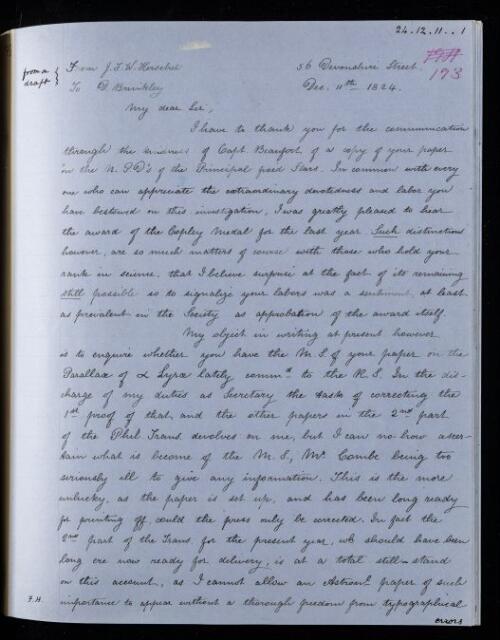 24.12.11..1
173
from a draft
From J. F. W. Herschel 56 Devonshire Street
To D. Brinkley Dec. 11th 1824.
My dear Sir,
I have to thank you for the communication
through the kindness of Capt. Beaufort of a copy of your paper
on the N.P.D's of the Principal fixed Stars. In common with every
one who can appreciate the extraordinary devotedness and labor you
have bestowed on this investigation, I was greatly pleased to hear
the award of the Copley Medal for the last year. Such distinctions
however, are so much matters of course with those who hold your
rank in science, that I believe surprise at the fact of its remaining
still possible so to signalize your labors was a sentiment, at least
as prevalent in the Society as approbation of the award itself.
My object in writing at present however
is to enquire whether you have the M.S. of your paper on the
Parallax of α Lyræ lately commd. to the R.S. In the dis-
charge of my duties as Secretary the task of correcting the
1st proof of that and the other papers in the 2nd part
of the Phil Trans. devolves on me, but I can no-how ascer-
tain what is become of the M.S., Mr. Combe being too
seriously ill to give any information. This is the more
unlucky, as the paper is set up, and has been long ready
for printing off, could the press only be corrected. In fact the
2nd part of the Trans. for the present year, wh should have been
long ere now ready for delivery, is at a total still-stand
on this account, as I cannot allow an Astronl. paper of such
importance to appear without a thorough freedom from typographical
F.H. errors